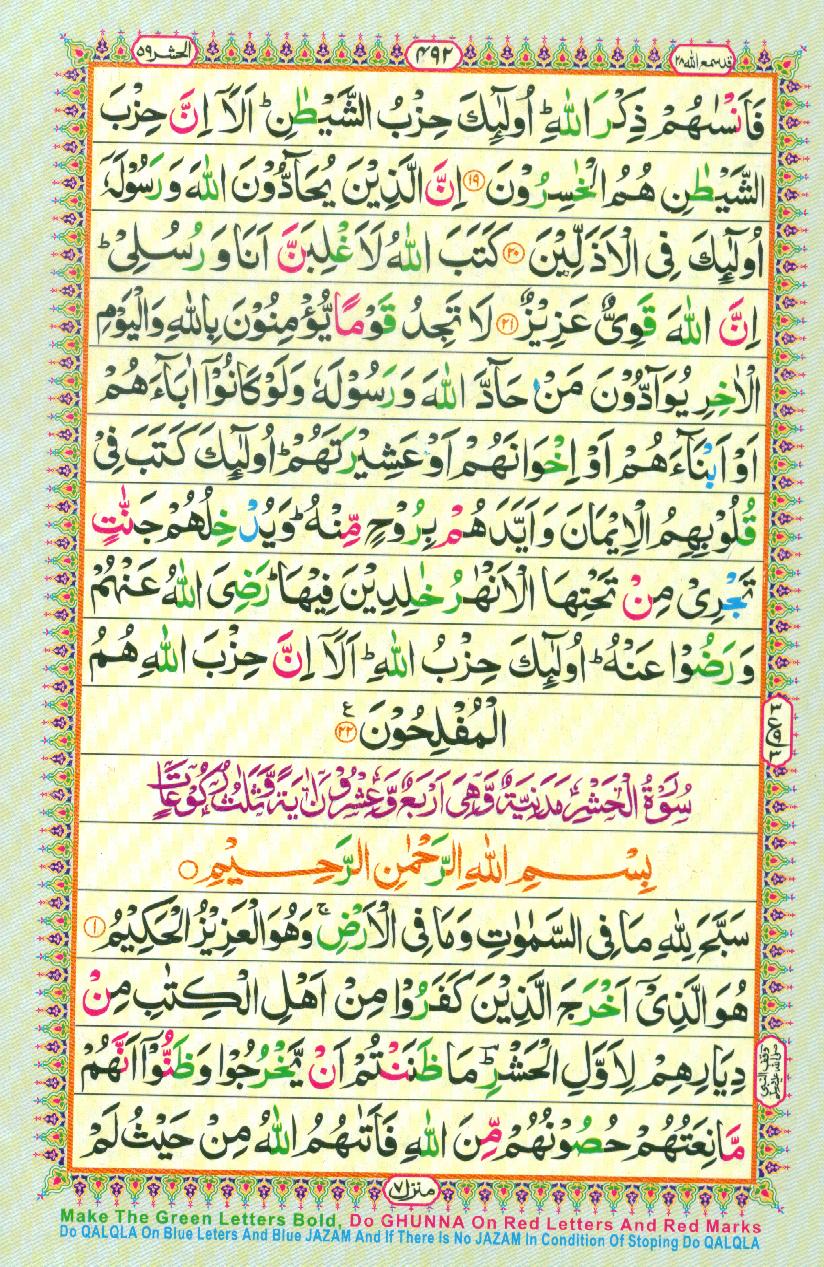 قدسمع الله ٢٨
٤٩٢
الحشر ٥٩
فَاَنْسٰىهُمْ ذِكْرَ اللّٰهِ ؕ اُولٰٓىِٕكَ حِزْبُ الشَّيْطٰنِ ؕ اَلَاۤ اِنَّ حِزْبَ
الشَّيْطٰنِ هُمُ الْخٰسِرُوْنَ ﴿١٩﴾ اِنَّ الَّذِيْنَ يُحَآدُّوْنَ اللّٰهَ وَ رَسُوْلَهٗۤ
اُولٰٓىِٕكَ فِى الْاَذَلِّيْنَ ﴿٢٠﴾ كَتَبَ اللّٰهُ لَاَغْلِبَنَّ اَنَا وَ رُسُلِىْ ؕ
اِنَّ اللّٰهَ قَوِىٌّ عَزِيْزٌ ﴿٢١﴾ لَا تَجِدُ قَوْمًا يُّؤْمِنُوْنَ بِاللّٰهِ وَالْيَوْمِ
الْاٰخِرِ يُوَآدُّوْنَ مَنْ حَآدَّ اللّٰهَ وَ رَسُوْلَهٗ وَلَوْ كَانُوْۤا اٰبَآءَهُمْ
اَوْ اَبْنَآءَهُمْ اَوْ اِخْوَانَهُمْ اَوْ عَشِيْرَتَهُمْ ؕ اُولٰٓىِٕكَ كَتَبَ فِىْ
قُلُوْبِهِمُ الْاِيْمَانَ وَ اَيَّدَهُمْ بِرُوْحٍ مِّنْهُ ؕ وَيُدْخِلُهُمْ جَنّٰتٍ
تَجْرِىْ مِنْ تَحْتِهَا الْاَنْهٰرُ خٰلِدِيْنَ فِيْهَا ؕ رَضِىَ اللّٰهُ عَنْهُمْ
وَ رَضُوْا عَنْهُ ؕ اُولٰٓىِٕكَ حِزْبُ اللّٰهِ ؕ اَلَاۤ اِنَّ حِزْبَ اللّٰهِ هُمُ
الْمُفْلِحُوْنَ ﴿٢٢﴾ ع
سُوْرَةُ الْحَشْرِ مَدَنِيَّةٌ وَّهِىَ اَرْبَعٌ وَّعِشْرُوْنَ اٰيَةً وَّثَلٰثُ رُكُوْعَاتٍ
بِسْمِ اللّٰهِ الرَّحْمٰنِ الرَّحِيْمِ
سَبَّحَ لِلّٰهِ مَا فِى السَّمٰوٰتِ وَمَا فِى الْاَرْضِ ۚ وَهُوَ الْعَزِيْزُ الْحَكِيْمُ ﴿١﴾
هُوَ الَّذِىْۤ اَخْرَجَ الَّذِيْنَ كَفَرُوْا مِنْ اَهْلِ الْكِتٰبِ مِنْ
دِيَارِهِمْ لِاَوَّلِ الْحَشْرِ ؕ مَا ظَنَنْتُمْ اَنْ يَّخْرُجُوْا وَظَنُّوْۤا اَنَّهُمْ
مَّانِعَتُهُمْ حُصُوْنُهُمْ مِّنَ اللّٰهِ فَاَتٰىهُمُ اللّٰهُ مِنْ حَيْثُ لَمْ
منزل ٧
Make The Green Letters Bold, Do GHUNNA On Red Letters And Red Marks
Do QALQLA On Blue Leters And Blue JAZAM And If There Is No JAZAM In Condition Of Stoping Do QALQLA